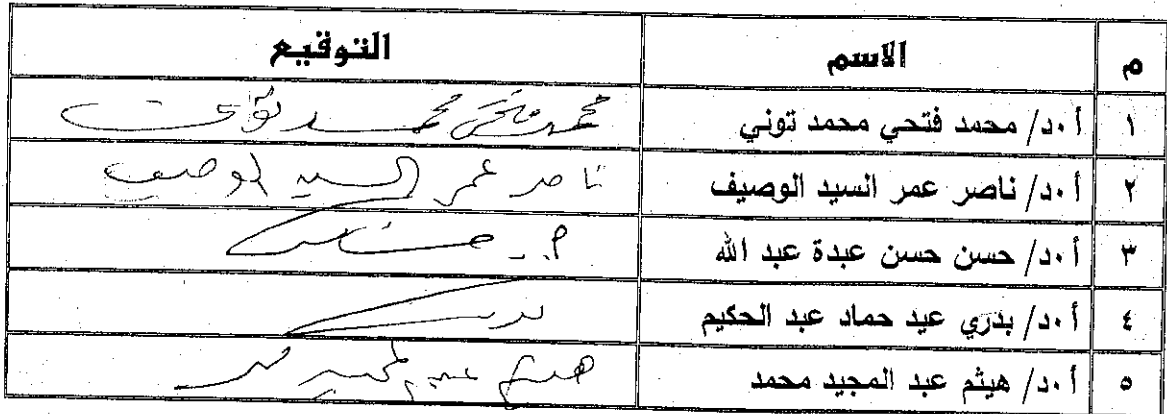 م الاسم التوقيع
١ أ.د/ محمد فتحي محمد توني محمد فتحي محمد توني
٢ أ.د/ ناصر عمر السيد الوصيف ناصر عمر السيد الوصيف
٣ أ.د/ حسن حسن عبدة عبد الله
٤ أ.د/ بدري عيد حماد عبد الحكيم
٥ أ.د/ هيثم عبد المجيد محمد هيثم عبد المجيد محمد